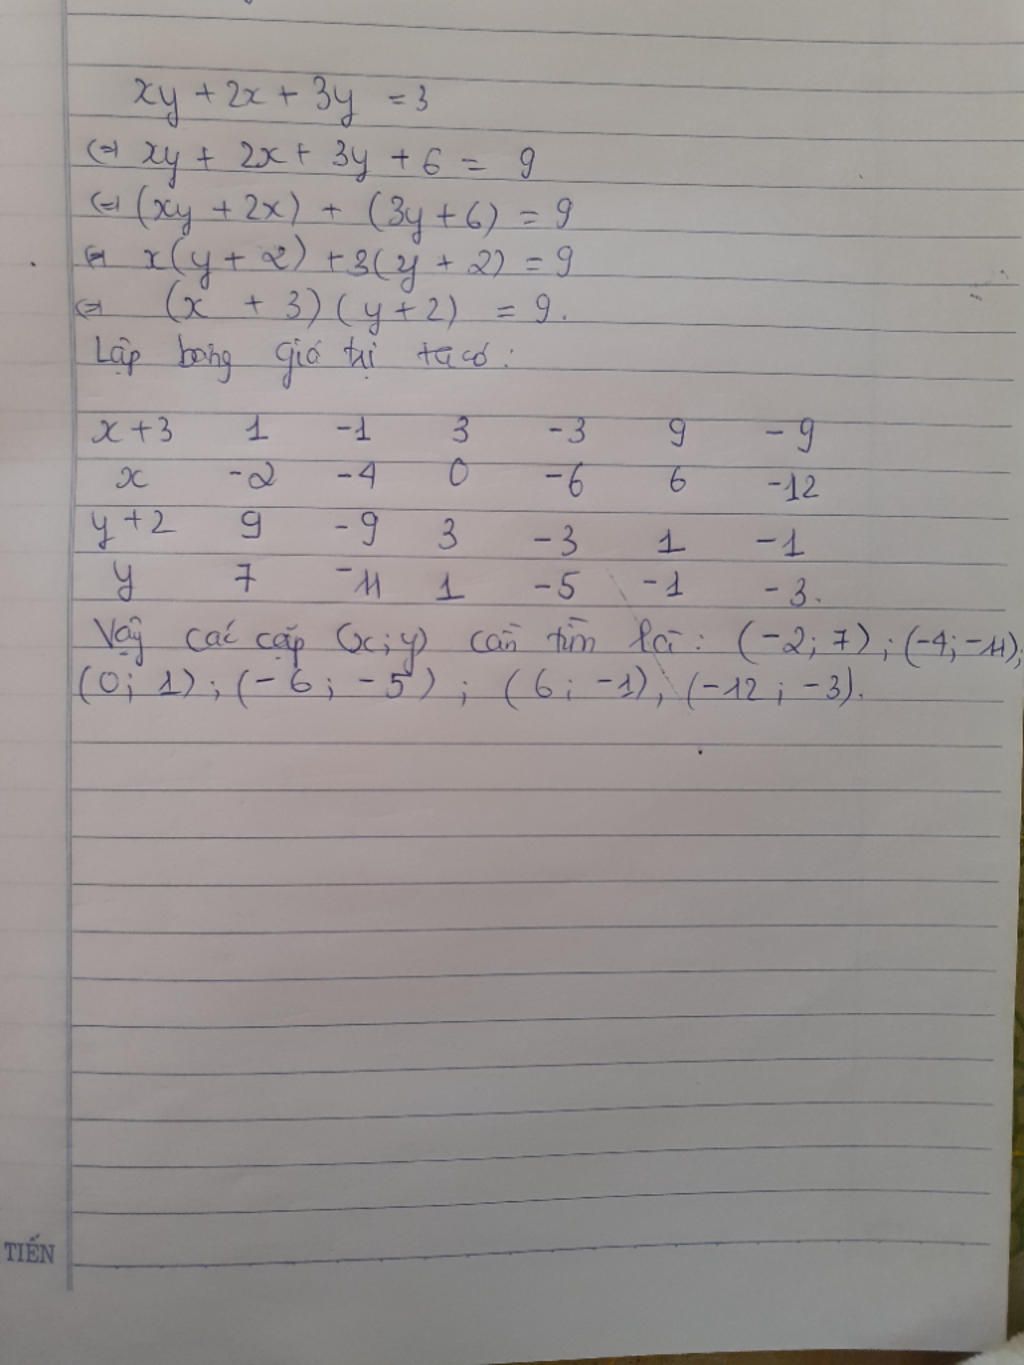 xy + 2x + 3y = 3
⇔ xy + 2x + 3y + 6 = 9
⇔ (xy + 2x) + (3y + 6) = 9
⇔ x(y + 2) + 3(y + 2) = 9
⇔ (x + 3)(y + 2) = 9.
Lập bảng giá trị ta có:
x + 3 1 -1 3 -3 9 -9
x -2 -4 0 -6 6 -12
y + 2 9 -9 3 -3 1 -1
y 7 -11 1 -5 -1 -3.
Vậy các cặp (x; y) cần tìm là: (-2; 7); (-4; -11);
(0; 1); (-6; -5); (6; -1), (-12; -3).
TIẾN